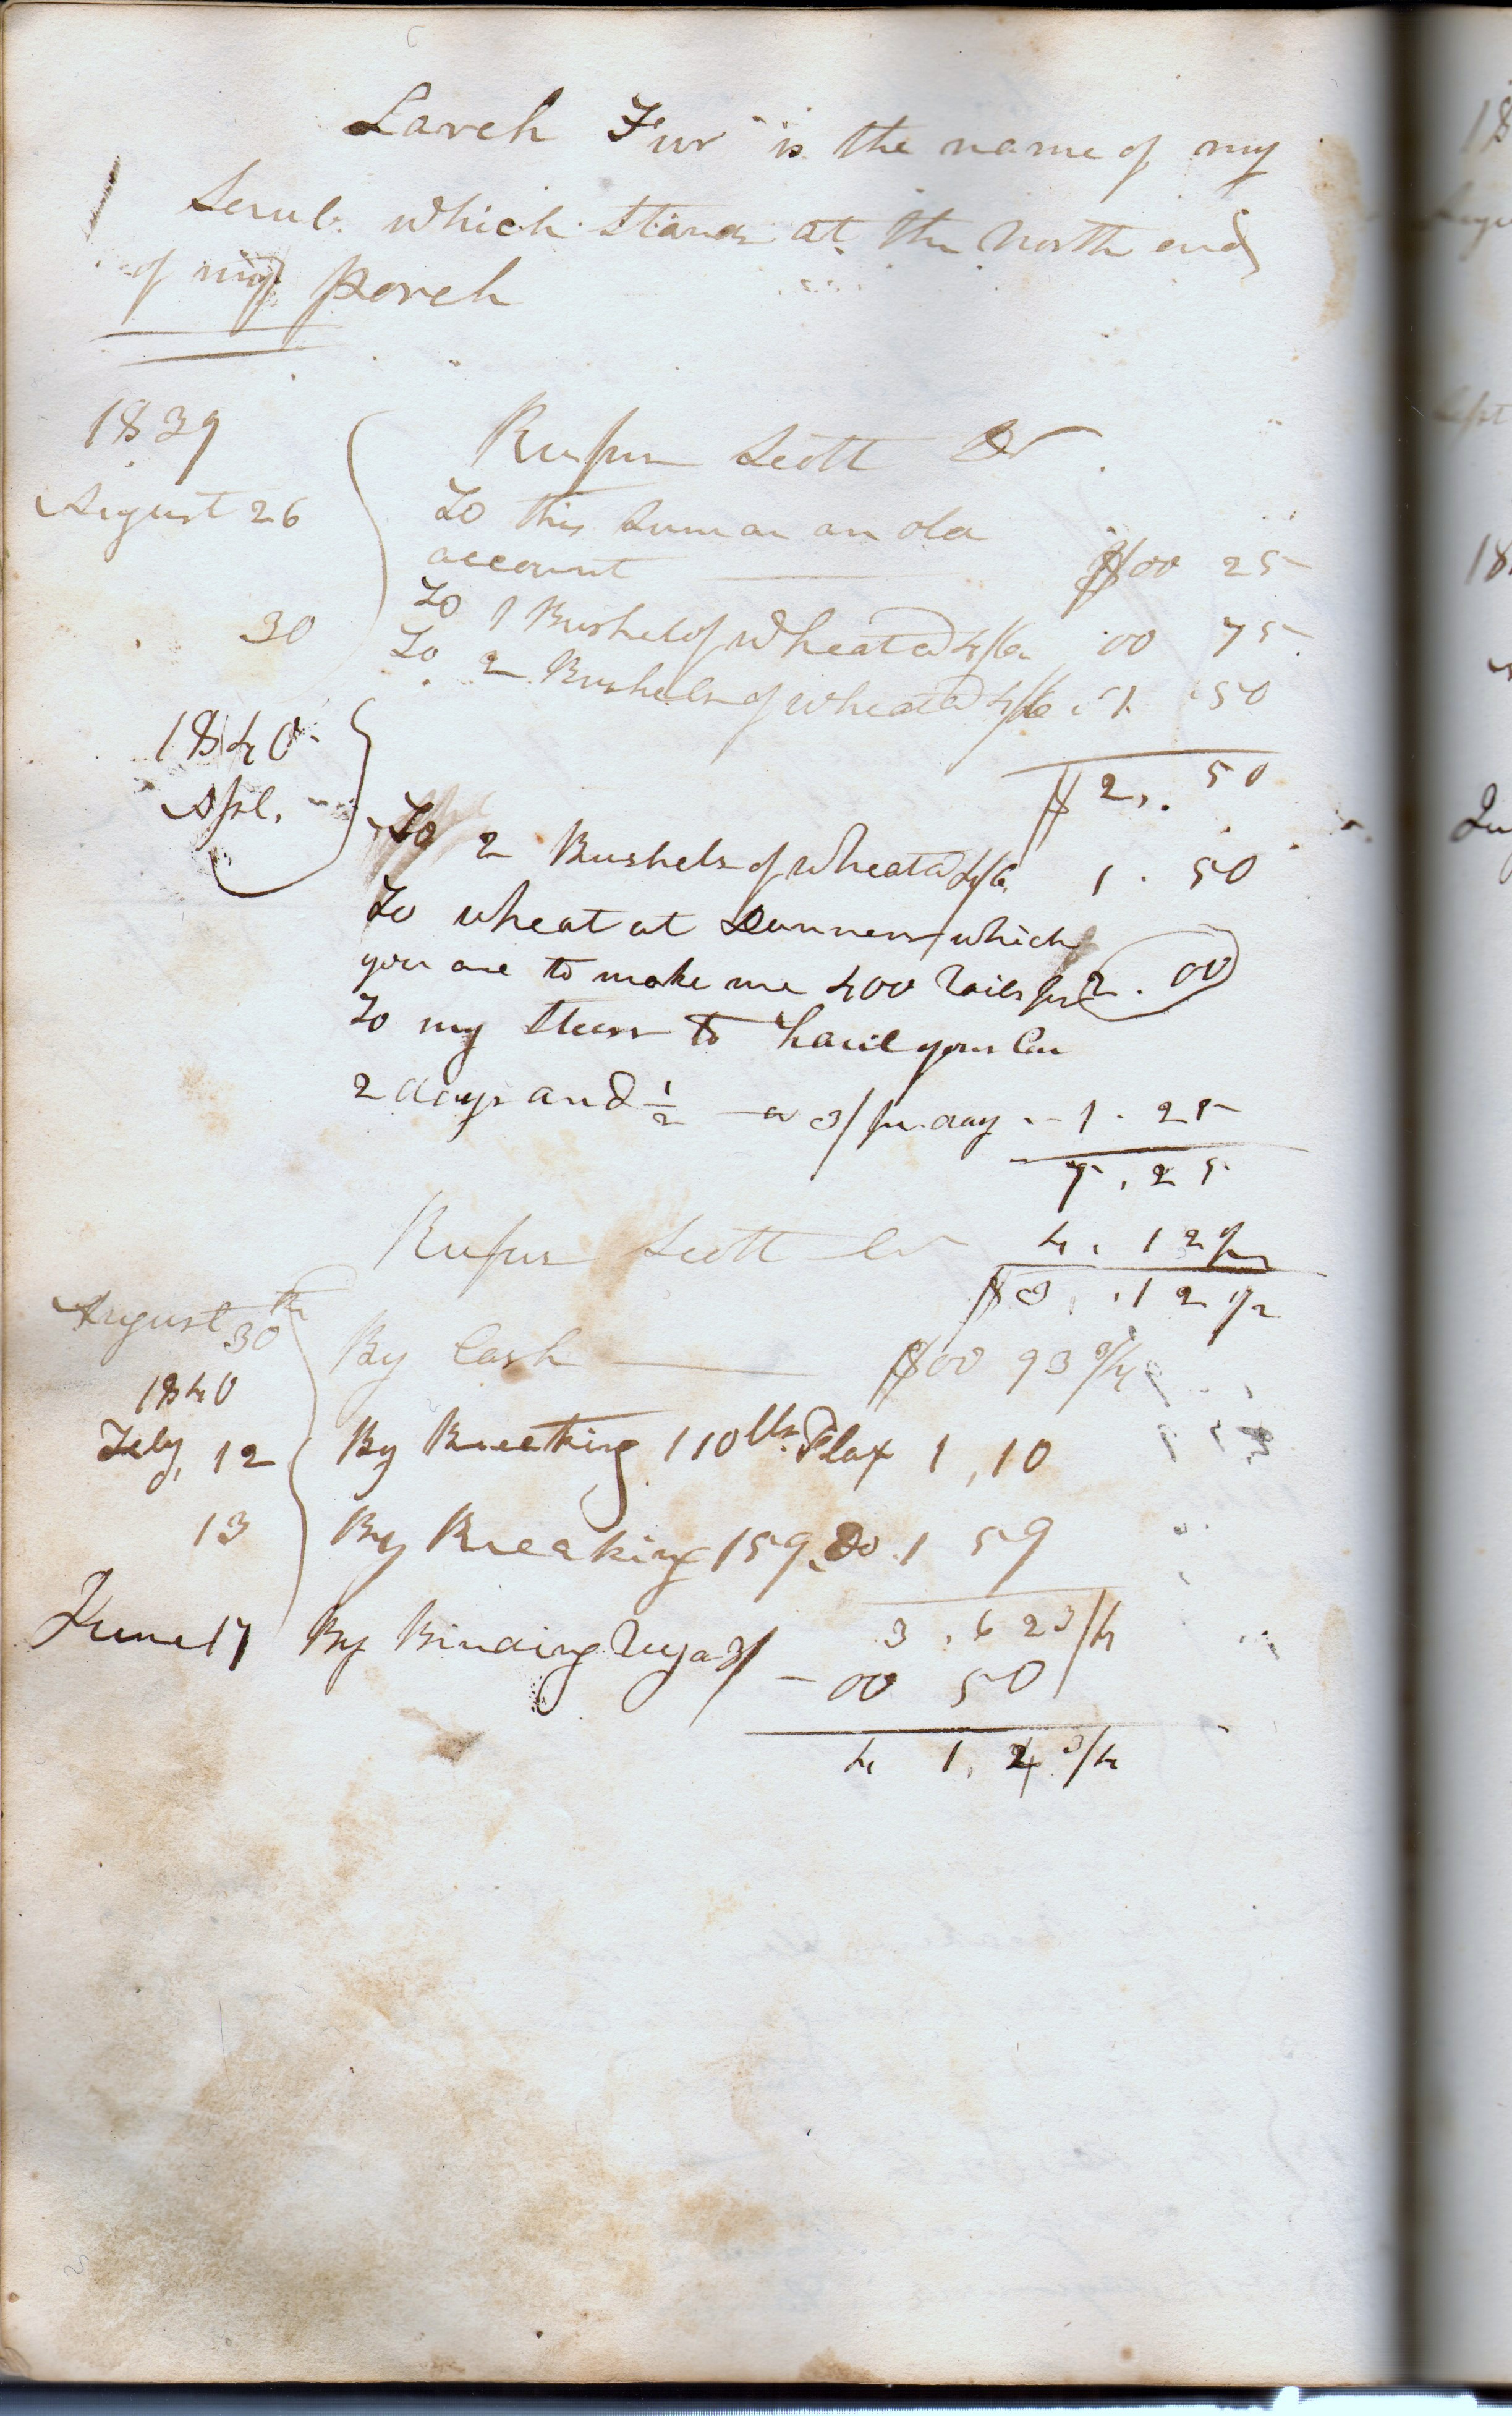 Larch Fur is the name of my
Scrub. which stands at the North end
of my porch
1839
Rufus Scott Dr
August 26
To this sum on an old
account $00 25
To 1 Bushel of Wheat @ 4/6 00 75
30 To 2 Bushels of wheat @ 4/6 1. 50
$2,. 50
1840
Apl.
To 2 Bushels of wheat @ 4/6. 1. 50
To wheat at which
you are to make me 400 rails for 2. 00
To my Steers to haul your
2 days and 1/2 - a 3/ per. day - 1. 25
7. 25
Rufus Scott Cr 4. 12 1/2
$3. 12 1/2
August 30th By Cash $00 93 3/4
1840
Feby, 12 By Breaking 110 lbs. Flax 1,10
13 By Breaking 159. Do. 1 59
3. 62 3/4
June 17 By Binding a 3/ - 00 50
4 1. 2 3/4